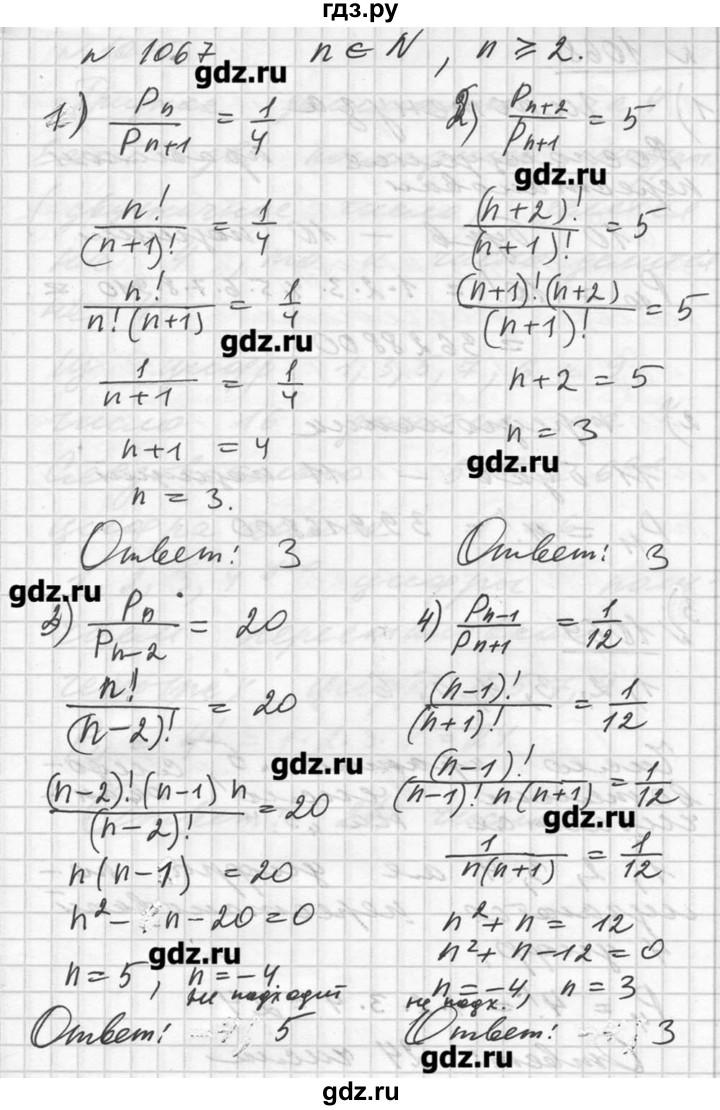 гдз.ру
№ 1067 n ∈ N, n ⩾ 2.
gdz.ru
1) Pn / Pn+1 = 1/4
n! / (n+1)! = 1/4
n! / n!(n+1) = 1/4
gdz.ru
1 / n+1 = 1/4
n+1 = 4
n = 3.
Ответ: 3
2) Pn+2 / Pn+1 = 5
gdz.ru
(n+2)! / (n+1)! = 5
(n+1)!(n+2) / (n+1)! = 5
n+2 = 5
n = 3
gdz.ru
Ответ: 3
gdz.ru
3) Pn / Pn-2 = 20
n! / (n-2)! = 20
gdz.ru
(n-2)!(n-1) n / (n-2)! = 20
n(n-1) = 20
n² - n - 20 = 0
gdz.ru
n = 5, n = -4
не подходит
Ответ: 5
4) Pn-1 / Pn+1 = 1/12
(n-1)! / (n+1)! = 1/12
(n-1)! / (n-1)! n(n+1) = 1/12
gdz.ru
1 / n(n+1) = 1/12
n² + n = 12
n² + n - 12 = 0
n = -4, n = 3
не подх.
Ответ: 3
gdz.ru
gdz.ru